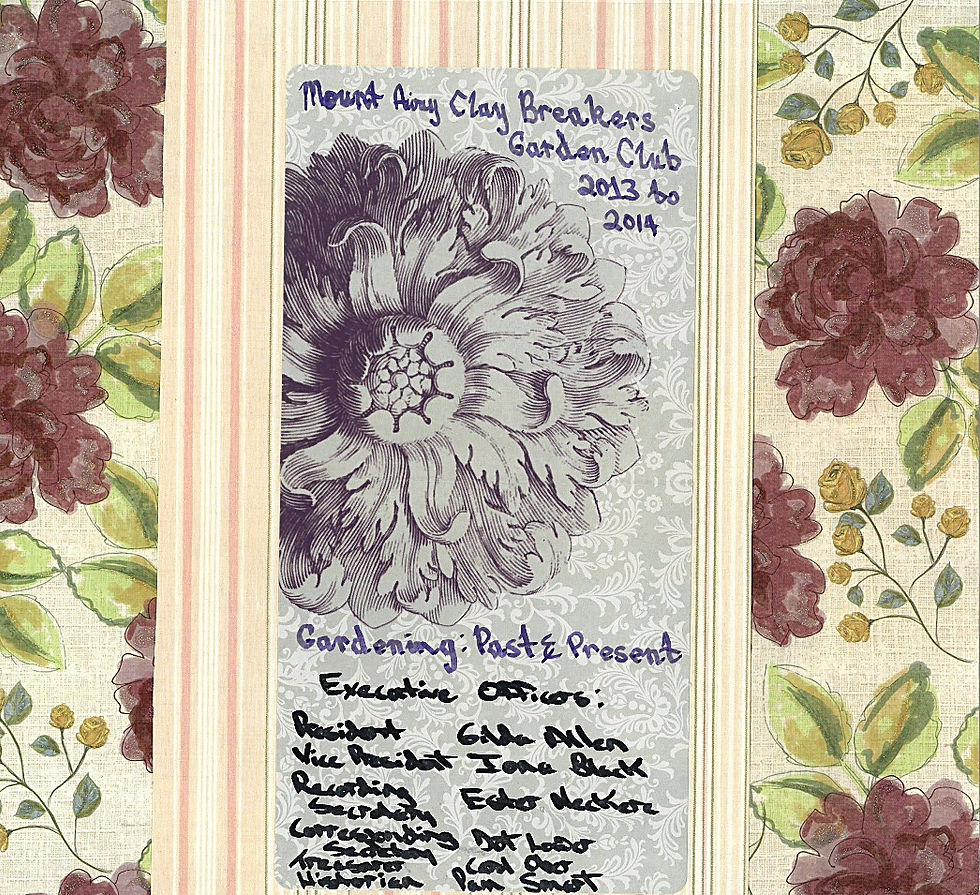 Mount Airy Clay Breakers
Garden Club
2013 to
2014
Gardening: Past & Present
Executive Officers:
President Gilda Allen
Vice President Iona Black
Recording
Secretary Ester
Corresponding Dot
Secretary
Treasurer
Historian Pam Smart